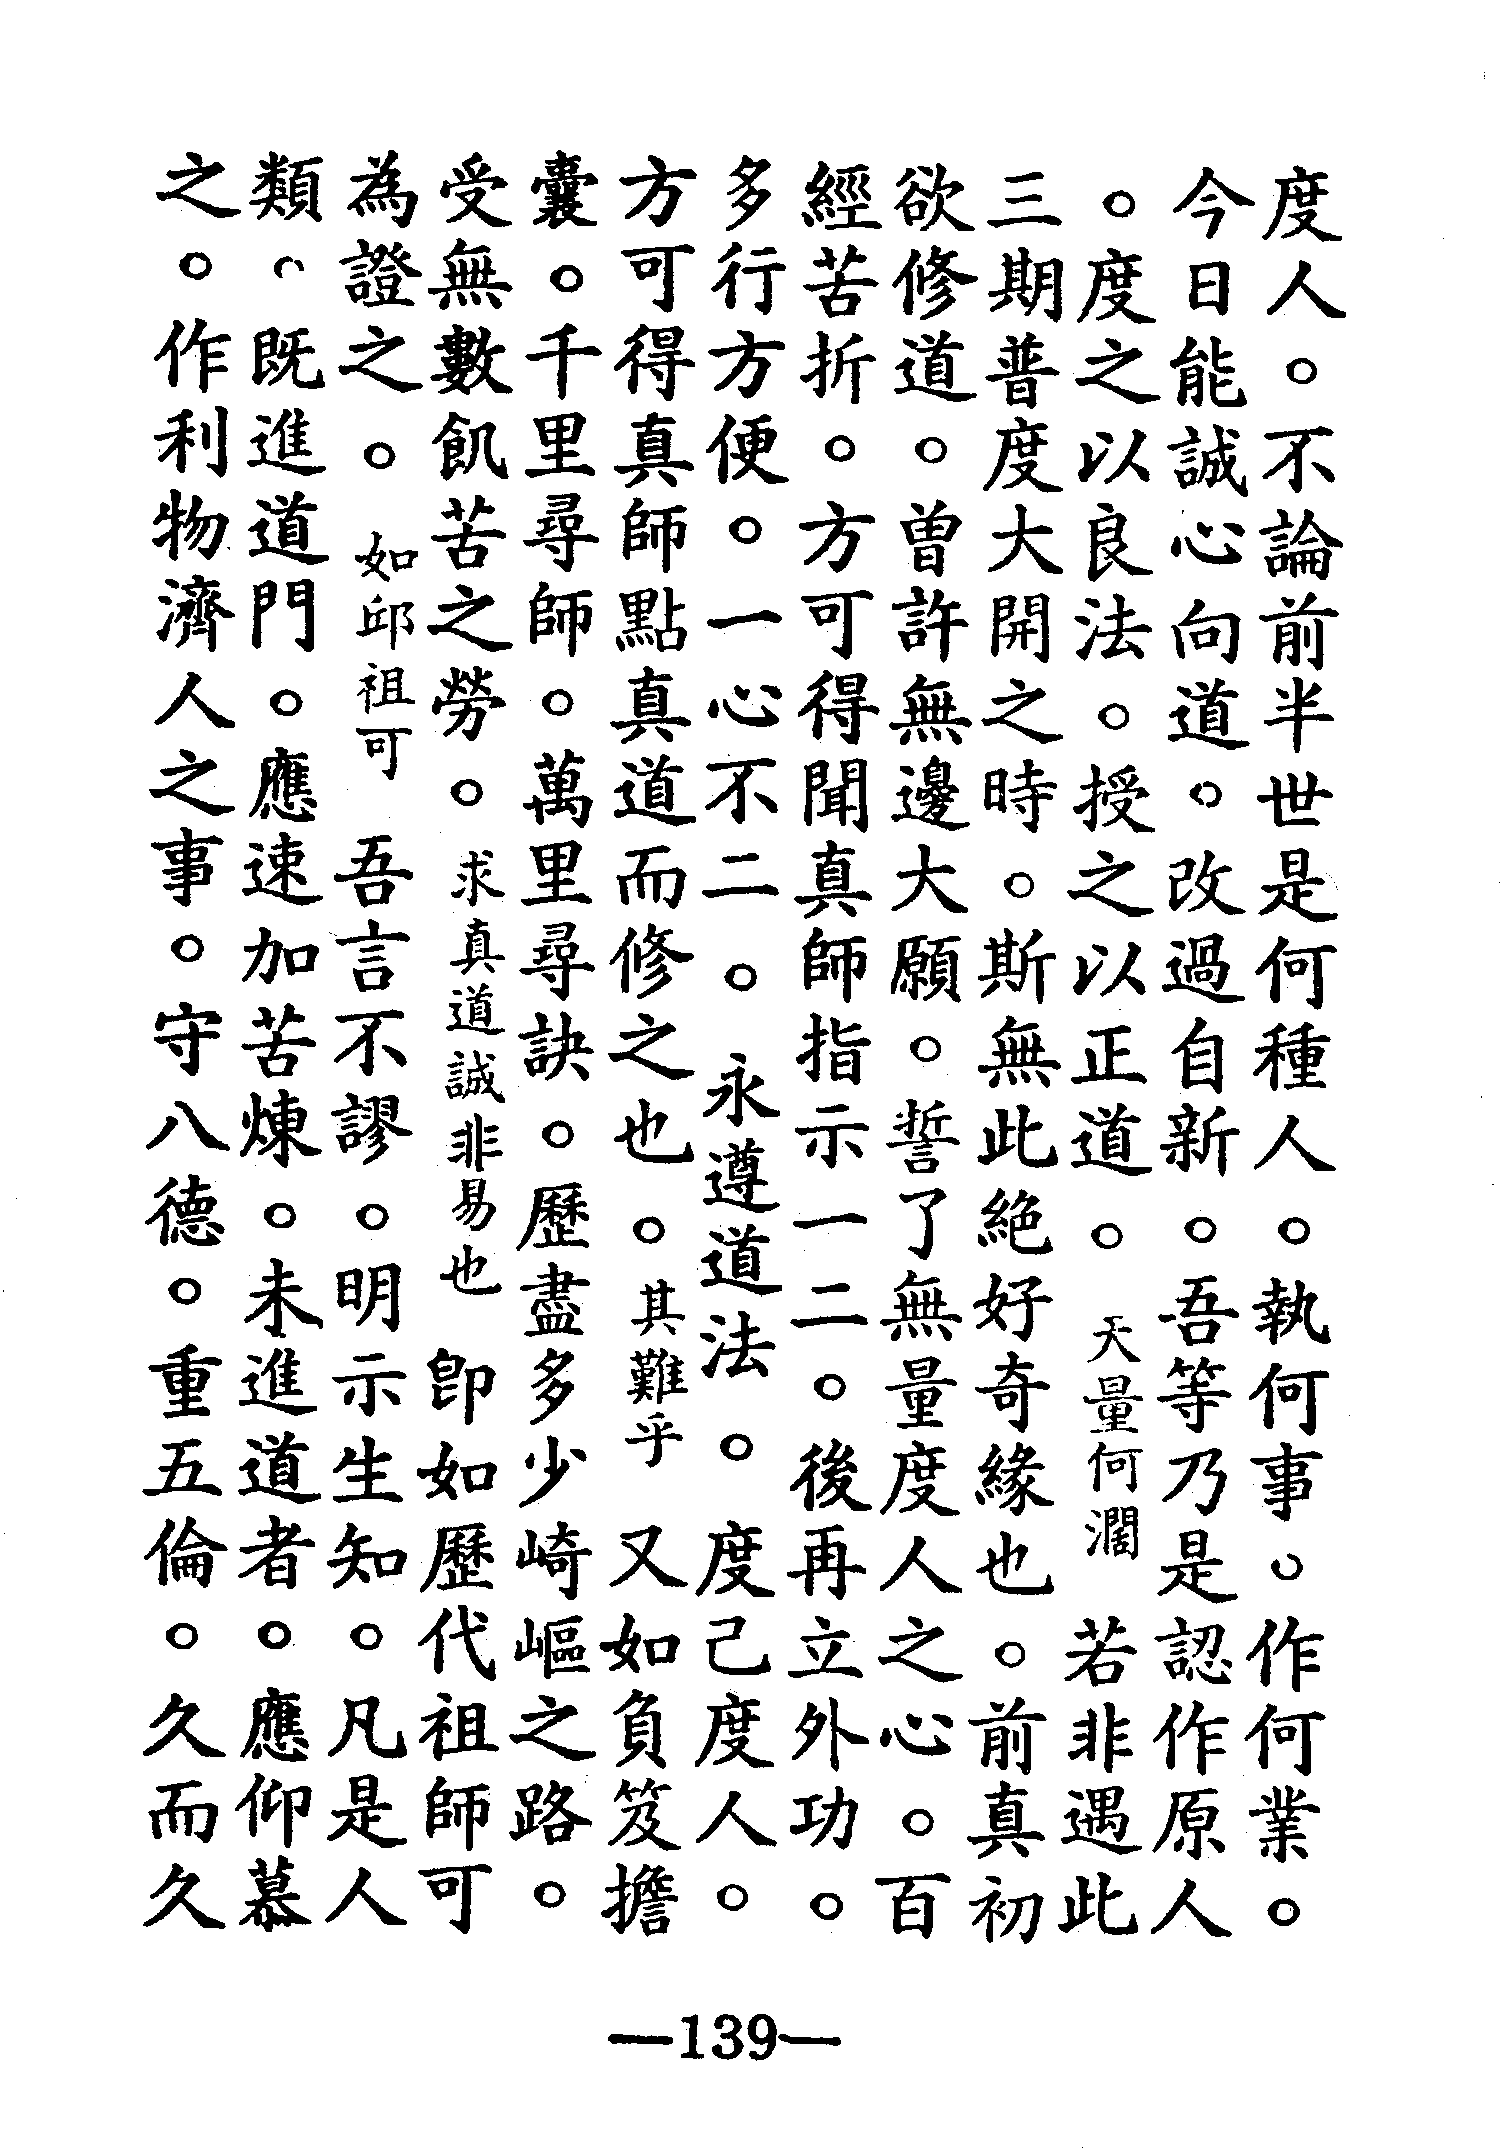 度人。不論前半世是何種人。執何事。作何業。
今日能誠心向道。改過自新。吾等乃是認作原人
。度之以良法。授之以正道。天量何濶 若非遇此
三期普度大開之時。斯無此絕好奇緣也。前真初
欲修道。曾許無邊大願。誓了無量度人之心。百
經苦折。方可得聞真師指示一二。後再立外功。
多行方便。一心不二。永遵道法。度己度人。
方可得真師點真道而修之也。其難乎 又如負笈擔
囊。千里尋師。萬里尋訣。歷盡多少崎嶇之路。
受無數飢苦之勞。求真道誠非易也 卽如歷代祖師可
為證之。如邱祖可 吾言不謬。明示生知。凡是人
類。既進道門。應速加苦煉。未進道者。應仰慕
之。作利物濟人之事。守八德。重五倫。久而久
—139—